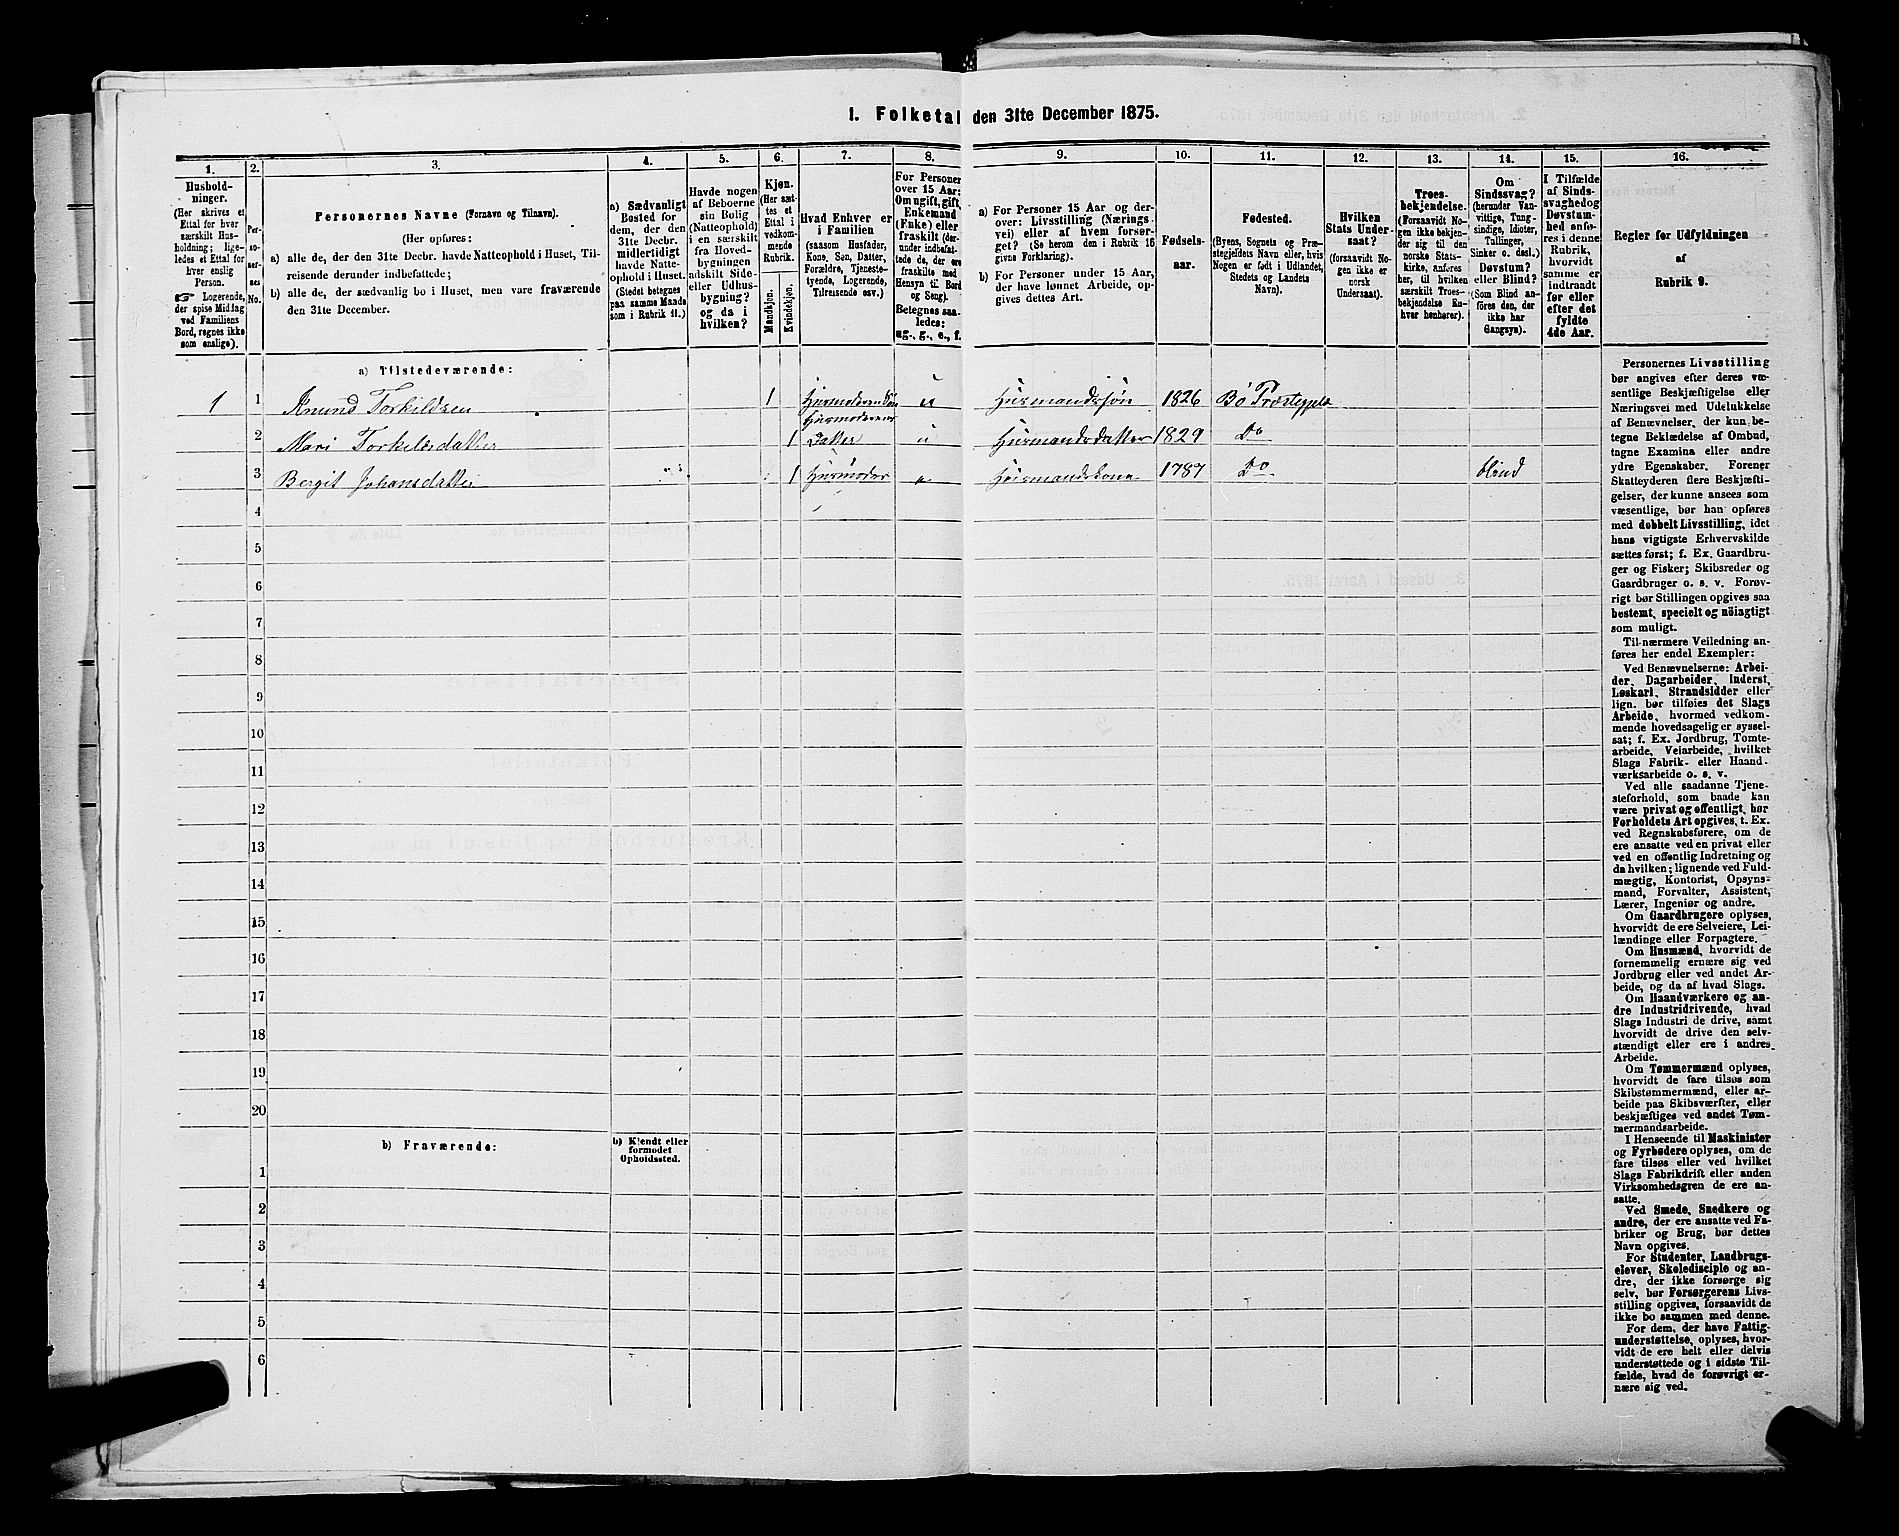 1. Folketal den 31te December 1875.
1. 2. 3. 4. 5. 6. 7. 8. 9. 10. 11. 12. 13. 14. 15. 16.
Hushold-
ninger.
(Her skrives et
Ettal for hver
særskilt Hus-
holdning; lige-
ledes et Ettal for
hver enslig
Person.
☞ Logerende,
der spise Middag
ved Familiens
Bord, regnes ikke
som enslige).
Per-
so-
ner-
nes
No.
Personernes Navne (Fornavn og Tilnavn).
(Her opføres:
a) alle de, der den 31te Decbr. havde Natteophold i Huset, Til-
reisende derunder indbefattede;
b) alle de, der sædvanlig bo i Huset, men vare fraværende
den 31te December.
a) Sædvanligt
Bosted for
dem, der den
31te Decbr.
midlertidigt
havde Natte-
ophold i Huset.
(Stedet betegnes
paa samme Maade
som i Rubrik 11.)
Havde nogen
af Beboerne
sin Bolig
(Natteophold)
i en særskilt
fra Hoved-
bygningen
adskilt Side-
eller Udhus-
bygning?
og da i
hvilken?
Kjøn.
(Her sæt-
tes et
Ettal i
vedkom-
mende
Rubrik.
Mandkjøn.
Kvindekjøn.
Hvad Enhver er
i Familien
(saasom Husfader,
Kone, Søn, Datter,
Forældre, Tjeneste-
tyende, Logerende,
Tilreisende osv.)
For Personer
over 15 Aar:
Om ugift, gift,
Enkemand
(Enke) eller
fraskilt (der-
under indbefat-
tede de, der ere
fraskilte med
Hensyn til Bord
og Seng).
Betegnes saa-
ledes:
ug., g., e., f.
a) For Personer 15 Aar og der-
over: Livsstilling (Nærings-
vei) eller af hvem forsør-
get? (Se herom den i Rubrik 16
givne Forklaring).
b) For Personer under 15 Aar,
der have lønnet Arbeide, op-
gives dettes Art.
Fødsels-
aar.
Fødested.
(Byens, Sognets og Præ-
stegjeldets Navn eller, hvis
Nogen er født i Udlandet,
Stedets og Landets
Navn).
Hvilken
Stats Under-
saat?
(forsaavidt No-
gen ikke er
norsk
Undersaat).
Troes-
bekjendelse.
(Forsaavidt No-
gen ikke bekjen-
der sig til den
norske Stats-
kirke, anføres
her, til hvilken
særskilt Troes-
bekjendelse En-
hver henhører).
Om
Sindssvag?
(herunder Van-
vittige, Tung-
sindige, Idioter,
Tullinger,
Sinker o. desl.)
Døvstum?
eller Blind?
(Som Blind an-
føres den, der
ikke har
Gangsyn).
I Tilfælde
af Sinds-
svaghed og
Døvstum-
hed anfø-
res i denne
Rubrik,
hvorvidt
samme er
indtraadt
før eller
efter det
fyldte
4de Aar.
Regler for Udfyldningen
af
Rubrik 9.
a) Tilstedeværende:
1 1 Knud Torkildsen 1 u Husmandssøn 1826 Bø
2 Mari Torkildsdatter 1 Datter u Husmandsdatter 1829 Do
3 Bergit Johansdatter 1 Husmoder Husmandskone 1787 Do blind
4
5
6
7
8
9
10
11
12
13
14
15
16
17
18
19
20
b) Fraværende: b) Kjendt eller
formodet
Opholdssted.
1
2
3
4
5
6
Personernes Livsstilling
bør angives efter deres væ-
sentlige Beskjæftigelse eller
Næringsvei med Udelukkelse
af Benævnelser, der kun be-
tegne Beklædelse af Ombud,
tagne Examina eller andre
ydre Egenskaber. Forener
Skatteyderen flere Beskjæfti-
gelser, der kunne ansees som
væsentlige, bør han opføres
med dobbelt Livsstilling, idet
hans vigtigste Erhvervskilde
sættes først; f. Ex. Gaardbru-
ger og Fisker; Skibsreder og
Gaardbruger o. s. v. Forøv-
rigt bør Stillingen opgives saa
bestemt, specielt og nöiagtigt
som muligt.
Til nærmere Veiledning an-
føres her endel Exempler:
Ved Benævnelserne: Arbei-
der, Dagarbeider, Inderst,
Løskarl, Strandsidder eller
lign. bør tilføies det Slags
Arbeide, hvormed vedkom-
mende hovedsagelig er syssel-
sat; f. Ex. Jordbrug, Tomte-
arbeide, Veiarbeide, hvilket
Slags Fabrik- eller Haand-
værksarbeide o. s. v.
Ved alle saadanne Tjene-
steforhold, som baade kan
være privat og offentligt, bør
Forholdets Art opgives, t. Ex.
ved Regnskabsførere, om de
ere ansatte ved en privat eller
ved en offentlig Indretning og
da hvilken; lignende ved Fuld-
mægtig, Kontorist, Opsyns-
mand, Forvalter, Assistent,
Lærer, Ingeniør og andre.
Om Gaardbrugere oplyses,
hvorvidt de ere Selveiere, Lei-
lændinge eller Forpagtere.
Om Husmænd, hvorvidt de
fornemmelig ernære sig ved
Jordbrug eller ved andet Ar-
beide, og da af hvad Slags.
Om Haandværkere og an-
dre Industridrivende, hvad
Slags Industri de drive, samt
hvorvidt de drive den selv-
stændigt eller ere i andres
Arbeide.
Om Tømmermænd oplyses,
hvorvidt de fare tilsøs som
Skibstømmermænd, eller ar-
beide paa Skibsværfter, eller
beskjæftiges ved andet Tøm-
mermandsarbeide.
I Henseende til Maskinister
og Fyrbødere oplyses, om de
fare tilsøs eller ved hvilket
Slags Fabrikdrift eller anden
Virksomhedsgren de ere an-
satte.
Ved Smede, Snedkere og
andre, der ere ansatte ved Fa-
briker og Brug, bør dettes
Navn opgives.
For Studenter, Landbrugs-
elever, Skoledisciple og an-
dre, der ikke forsørge sig
selv, bør Forsørgerens Livs-
stilling opgives, forsaavidt de
ikke bo sammen med denne.
For dem, der have Fattig-
understøttelse, oplyses, hvor-
vidt de ere helt eller delvis
understøttede og i sidste Til-
fælde, hvad de forøvrigt er-
nære sig ved.